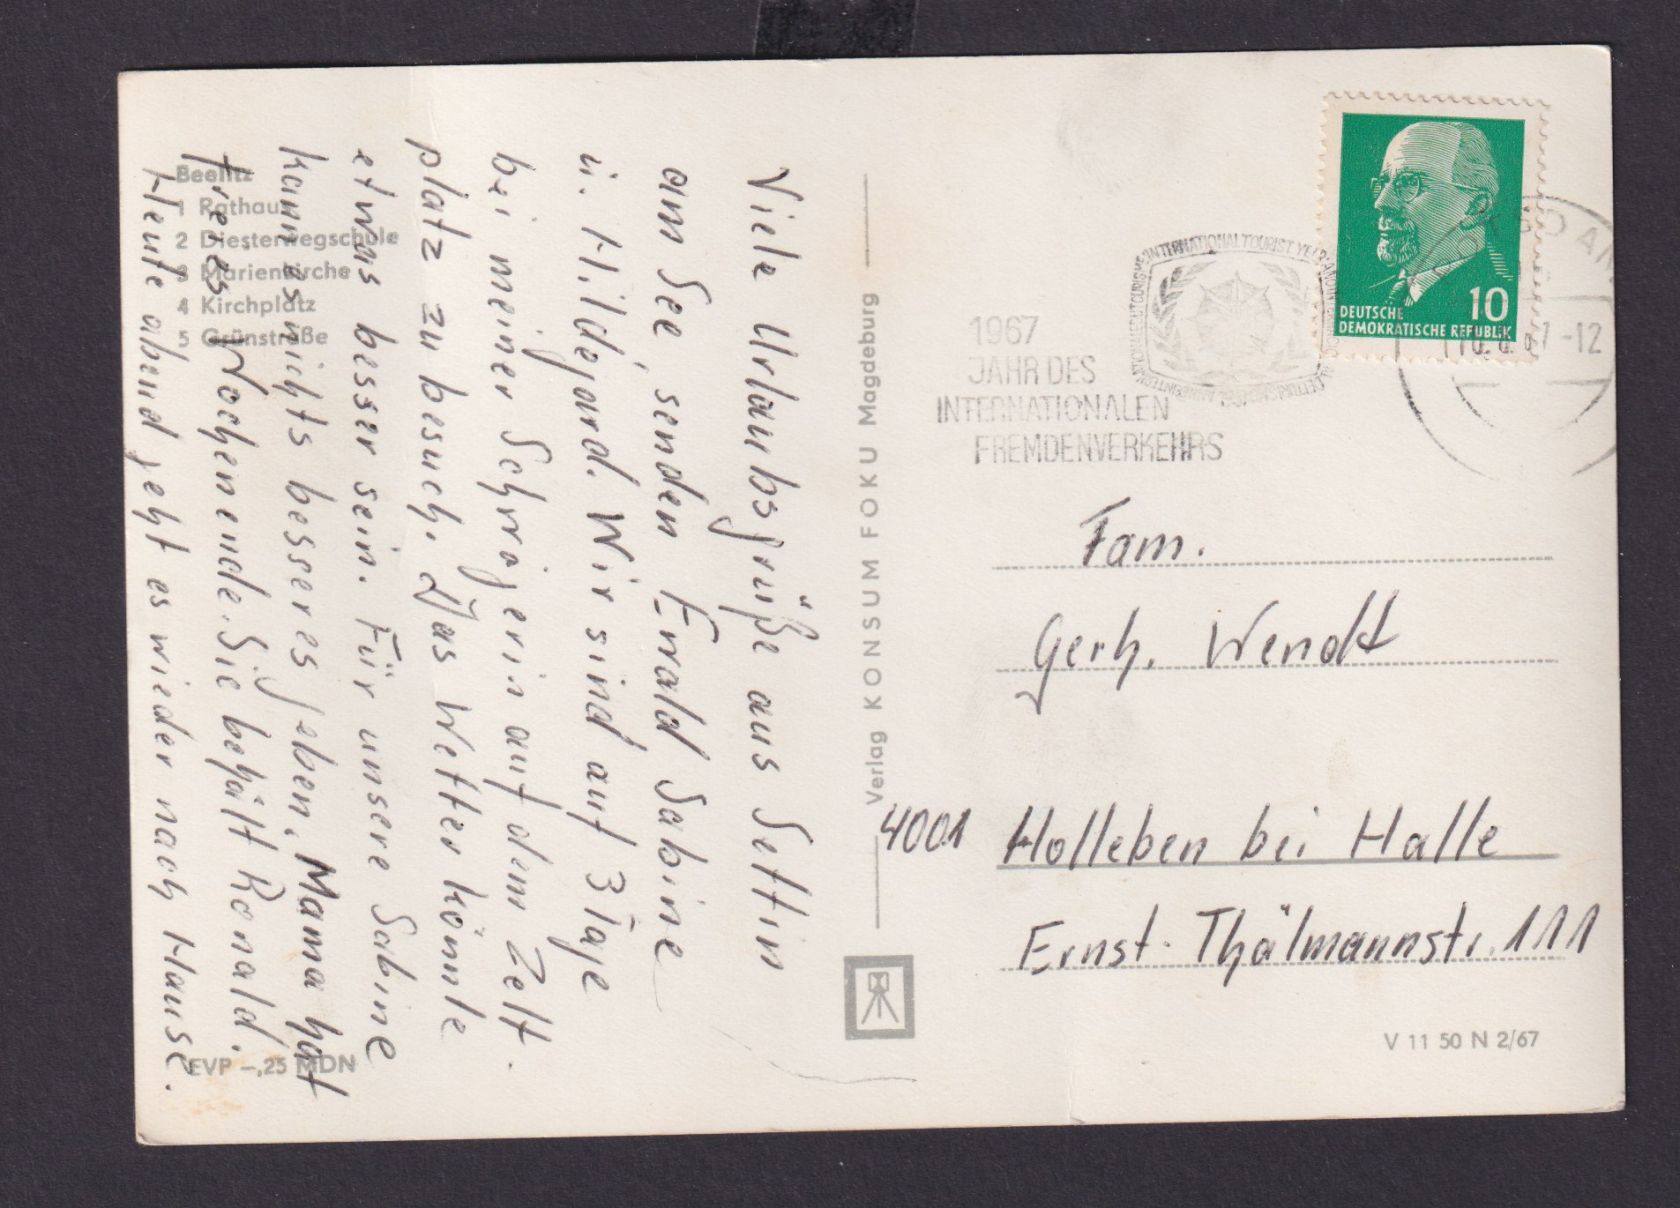 Beelitz
1 Rathaus
2 Diesterwegschule
3 Marienkirche
4 Kirchplatz
5 Grünstraße
Viele Urlaubsgrüße aus Settin
am See, senden Ewald Sabine
u. Hildegard. Wir sind auf 3 Tage
bei meiner Schwägerin auf dem Zelt-
platz zu besuch. Das Wetter könnte
etwas besser sein. Für unsere Sabine
kann es nichts besseres geben. Mama hat
freies Wochenende. Sie behält Ronald.
Heute abend geht es wieder nach Hause.
EVP -,25 MDN
Verlag KONSUM FOKU Magdeburg
1967
JAHR DES
INTERNATIONALEN
FREMDENVERKEHRS
INTERNATIONAL TOURIST YEAR
10
DEUTSCHE
DEMOKRATISCHE REPUBLIK
-12
Fam.
Gerh. Wendt
4001 Holleben bei Halle
Ernst-Thälmannstr. 111
V 11 50 N 2/67